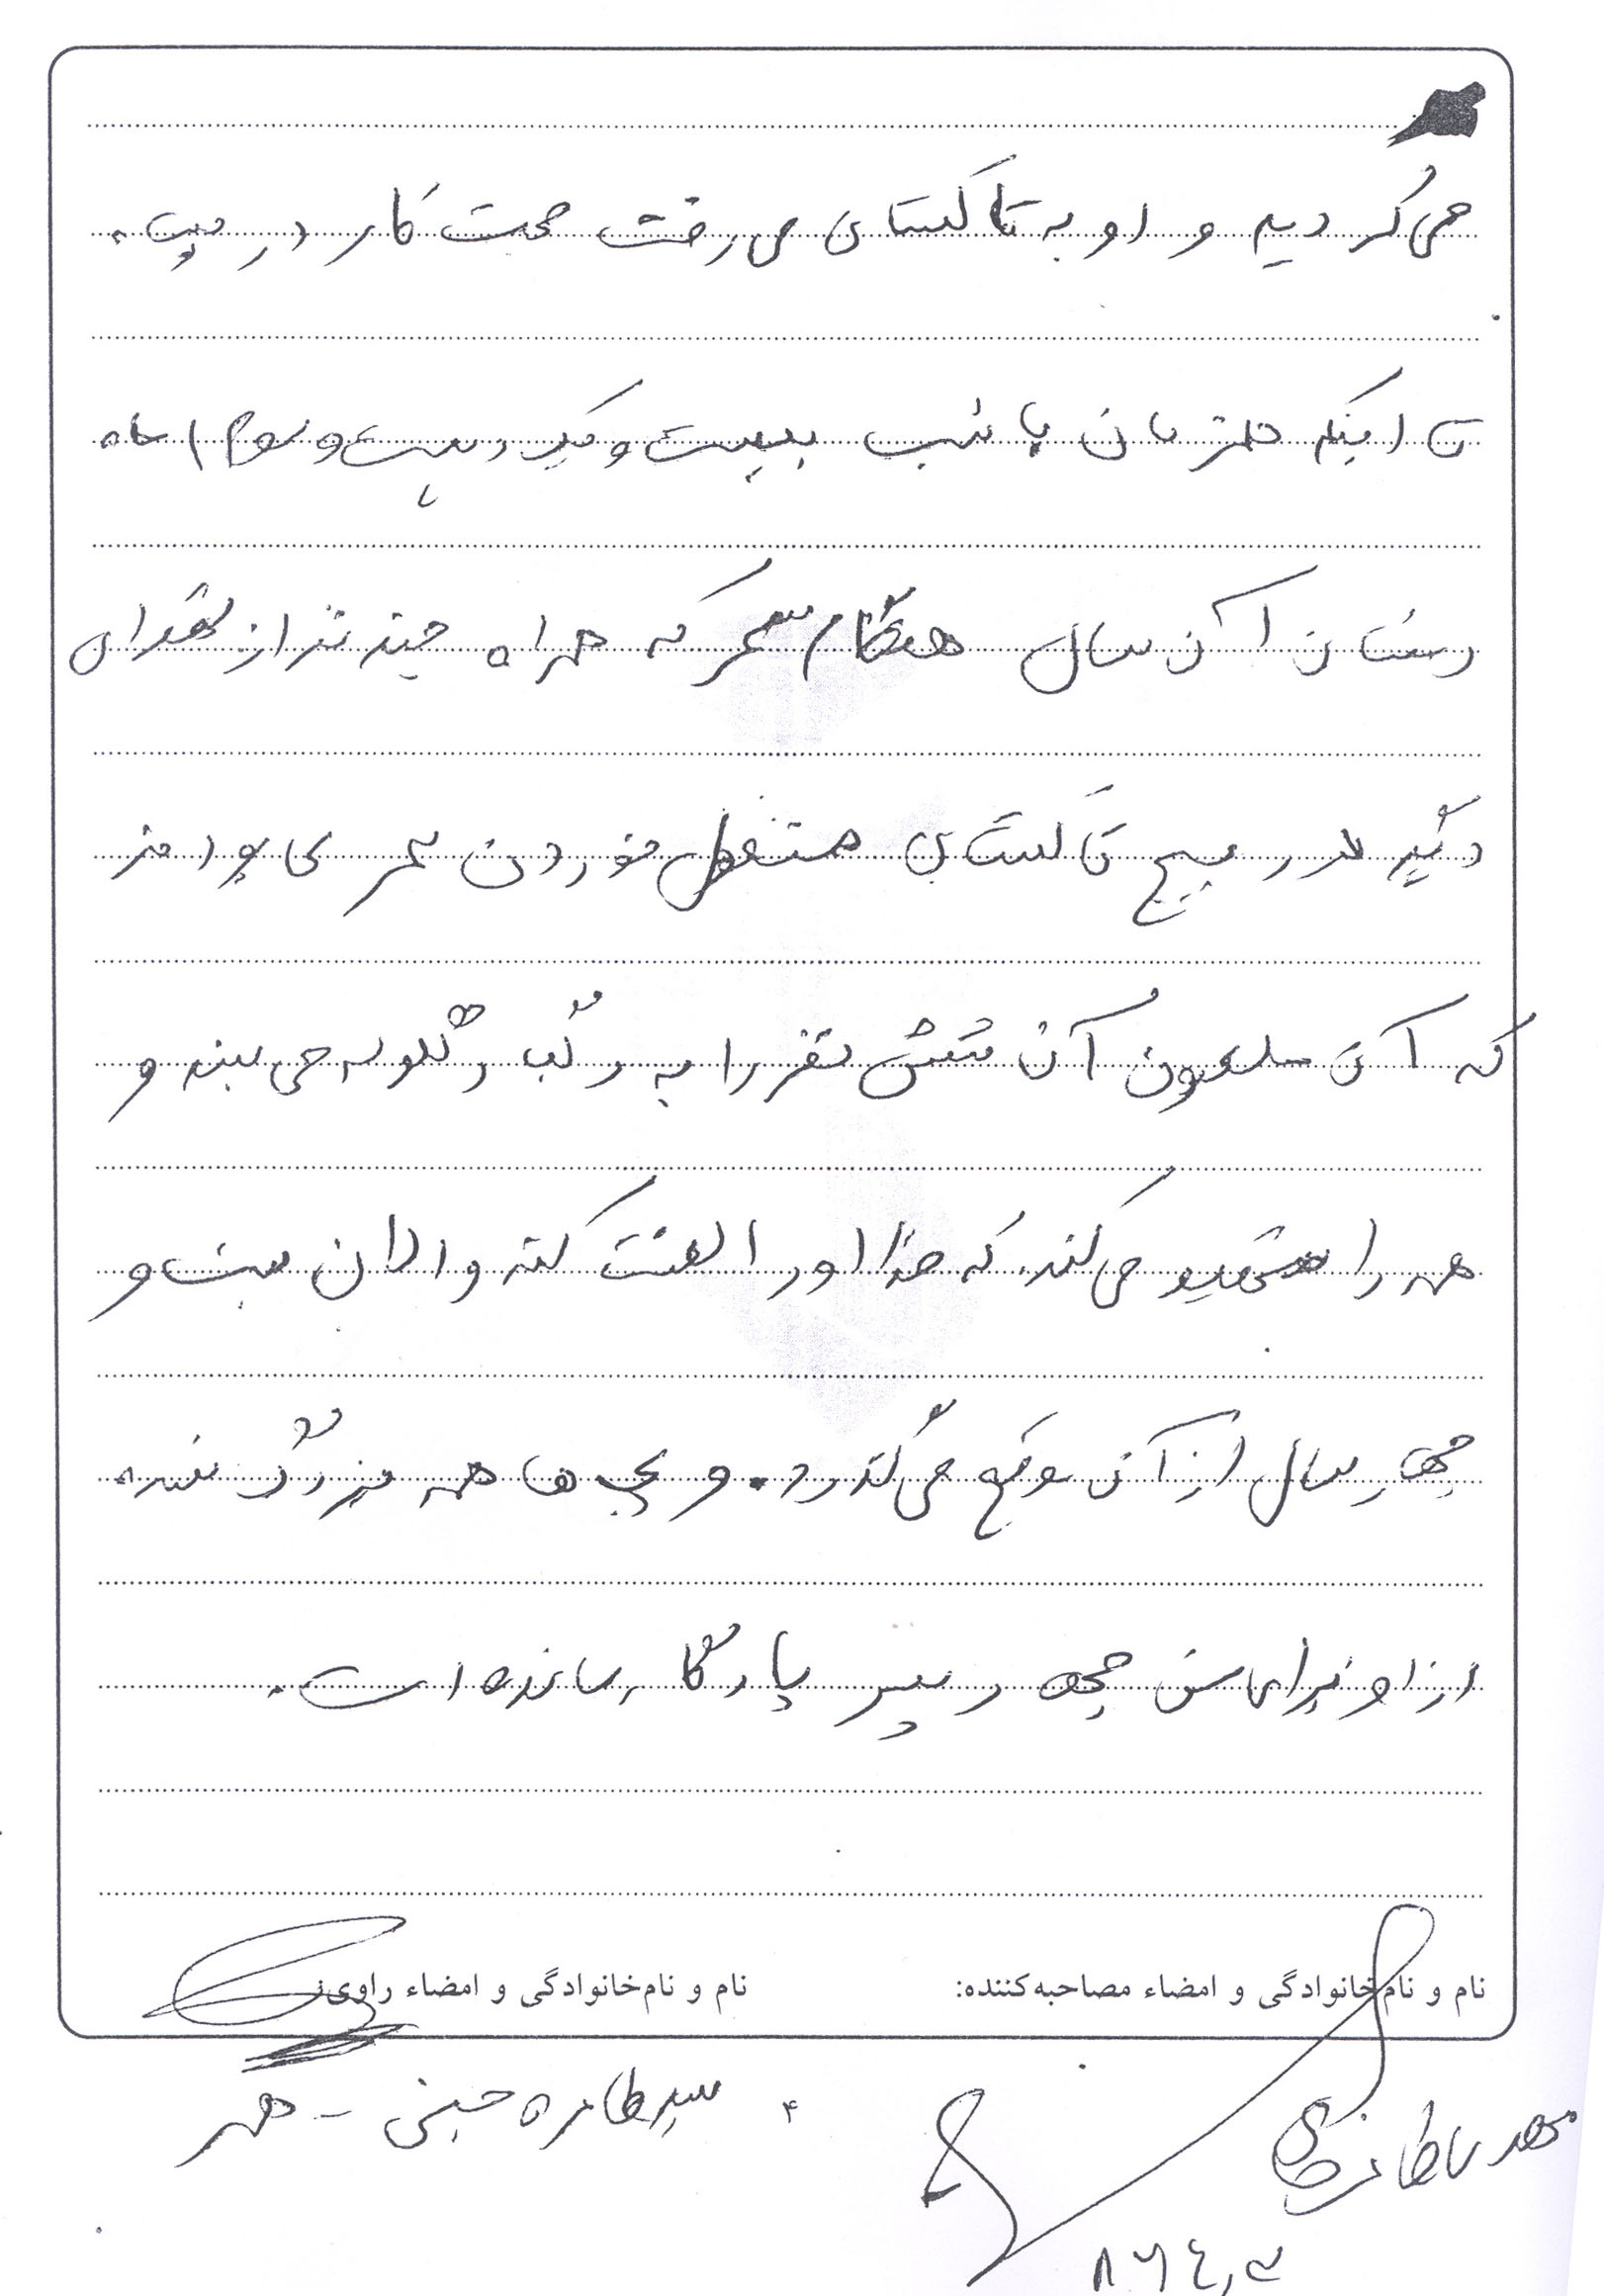 می‌کردیم و او به تاکستان می‌رفت جهت کار در
تا اینکه بیست و یک و بیست و سوم ماه
رمضان آن سال هنگام سحر که همراه چند نفر از فقرای
دیگر در تاکستان مشغول خوردن سحری بودند
که آن ملعون آن شش نفر را به رگبار گلوله می‌بندد و
همه را شهید می‌کند. که خدا او را لعنت کند و الان بیست و
چهار سال از آن موقع می‌گذرد. و بچه‌ها همه بزرگ شدند
از او برای من چهار پسر یادگار مانده است.
نام و نام‌خانوادگی و امضاء مصاحبه‌کننده:
نام و نام‌خانوادگی و امضاء راوی:
سید طاهره حسینی - همسر